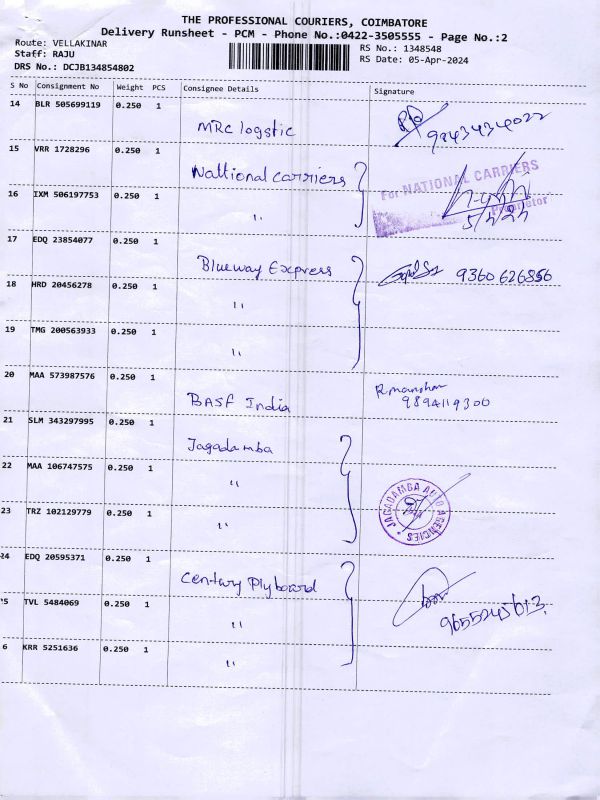 THE PROFESSIONAL COURIERS, COIMBATORE
Delivery Runsheet - PCM - Phone No.:0422-3505555 - Page No.:2
Route: VELLAKINAR
Staff: RAJU
DRS No.: DCJB134854802
RS No.: 1348548
RS Date: 05-Apr-2024
S No Consignment No Weight PCS Consignee Details Signature
14 BLR 505699119 0.250 1
MRC logstic 9843434022
15 VRR 1728296 0.250 1
National carriers
For NATIONAL CARRIERS
Proprietor
5/4/24
16 IXM 506197753 0.250 1
"
17 EDQ 23854077 0.250 1
Blueway Express 9360626856
18 HRD 20456278 0.250 1
"
19 TMG 200563933 0.250 1
"
20 MAA 573987576 0.250 1
BASF India
9894119300
21 SLM 343297995 0.250 1
Jagadamba
22 MAA 106747575 0.250 1
"
JAGADAMBA AUTO AGENCIES
23 TRZ 102129779 0.250 1
"
24 EDQ 20595371 0.250 1
Century Plyboard
25 TVL 5484069 0.250 1
"
6 KRR 5251636 0.250 1
"